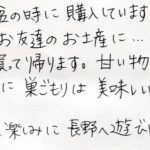 の時に購入しています
お友達のお土産に…
って帰ります。甘い物
に巣ごもりは美味しい
楽しみに長野へ遊び